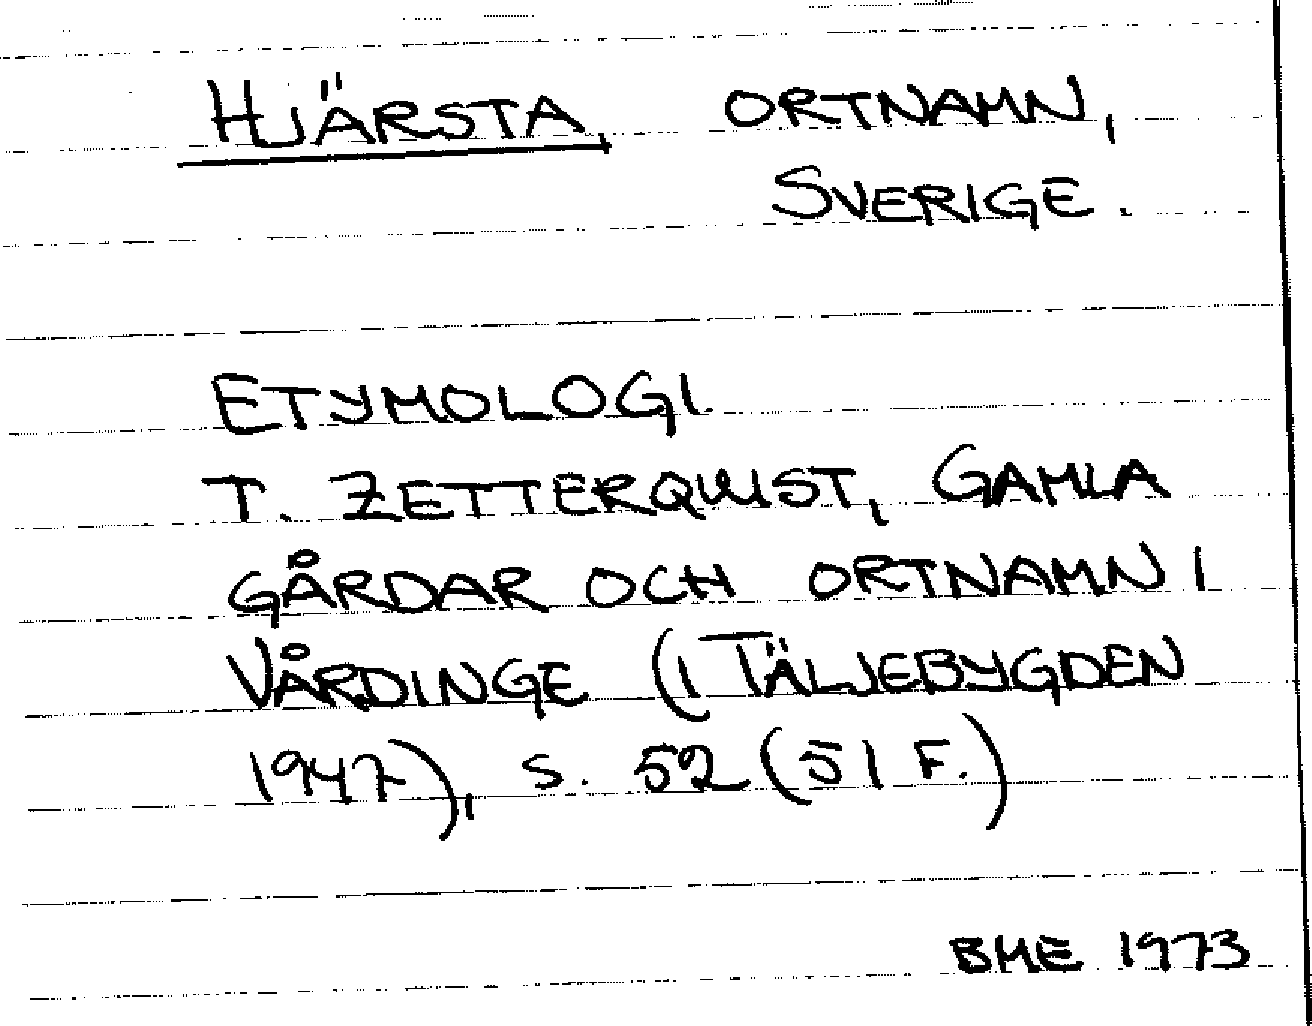 HJÄRSTA, ORTNAMN,
SVERIGE.
ETYMOLOGI
T. ZETTERQWIST, GAMLA
GÅRDAR OCH ORTNAMN I
VÅRDINGE (I TÄLJEBYGDEN
1947), S. 52 (51 F.)
BME 1973